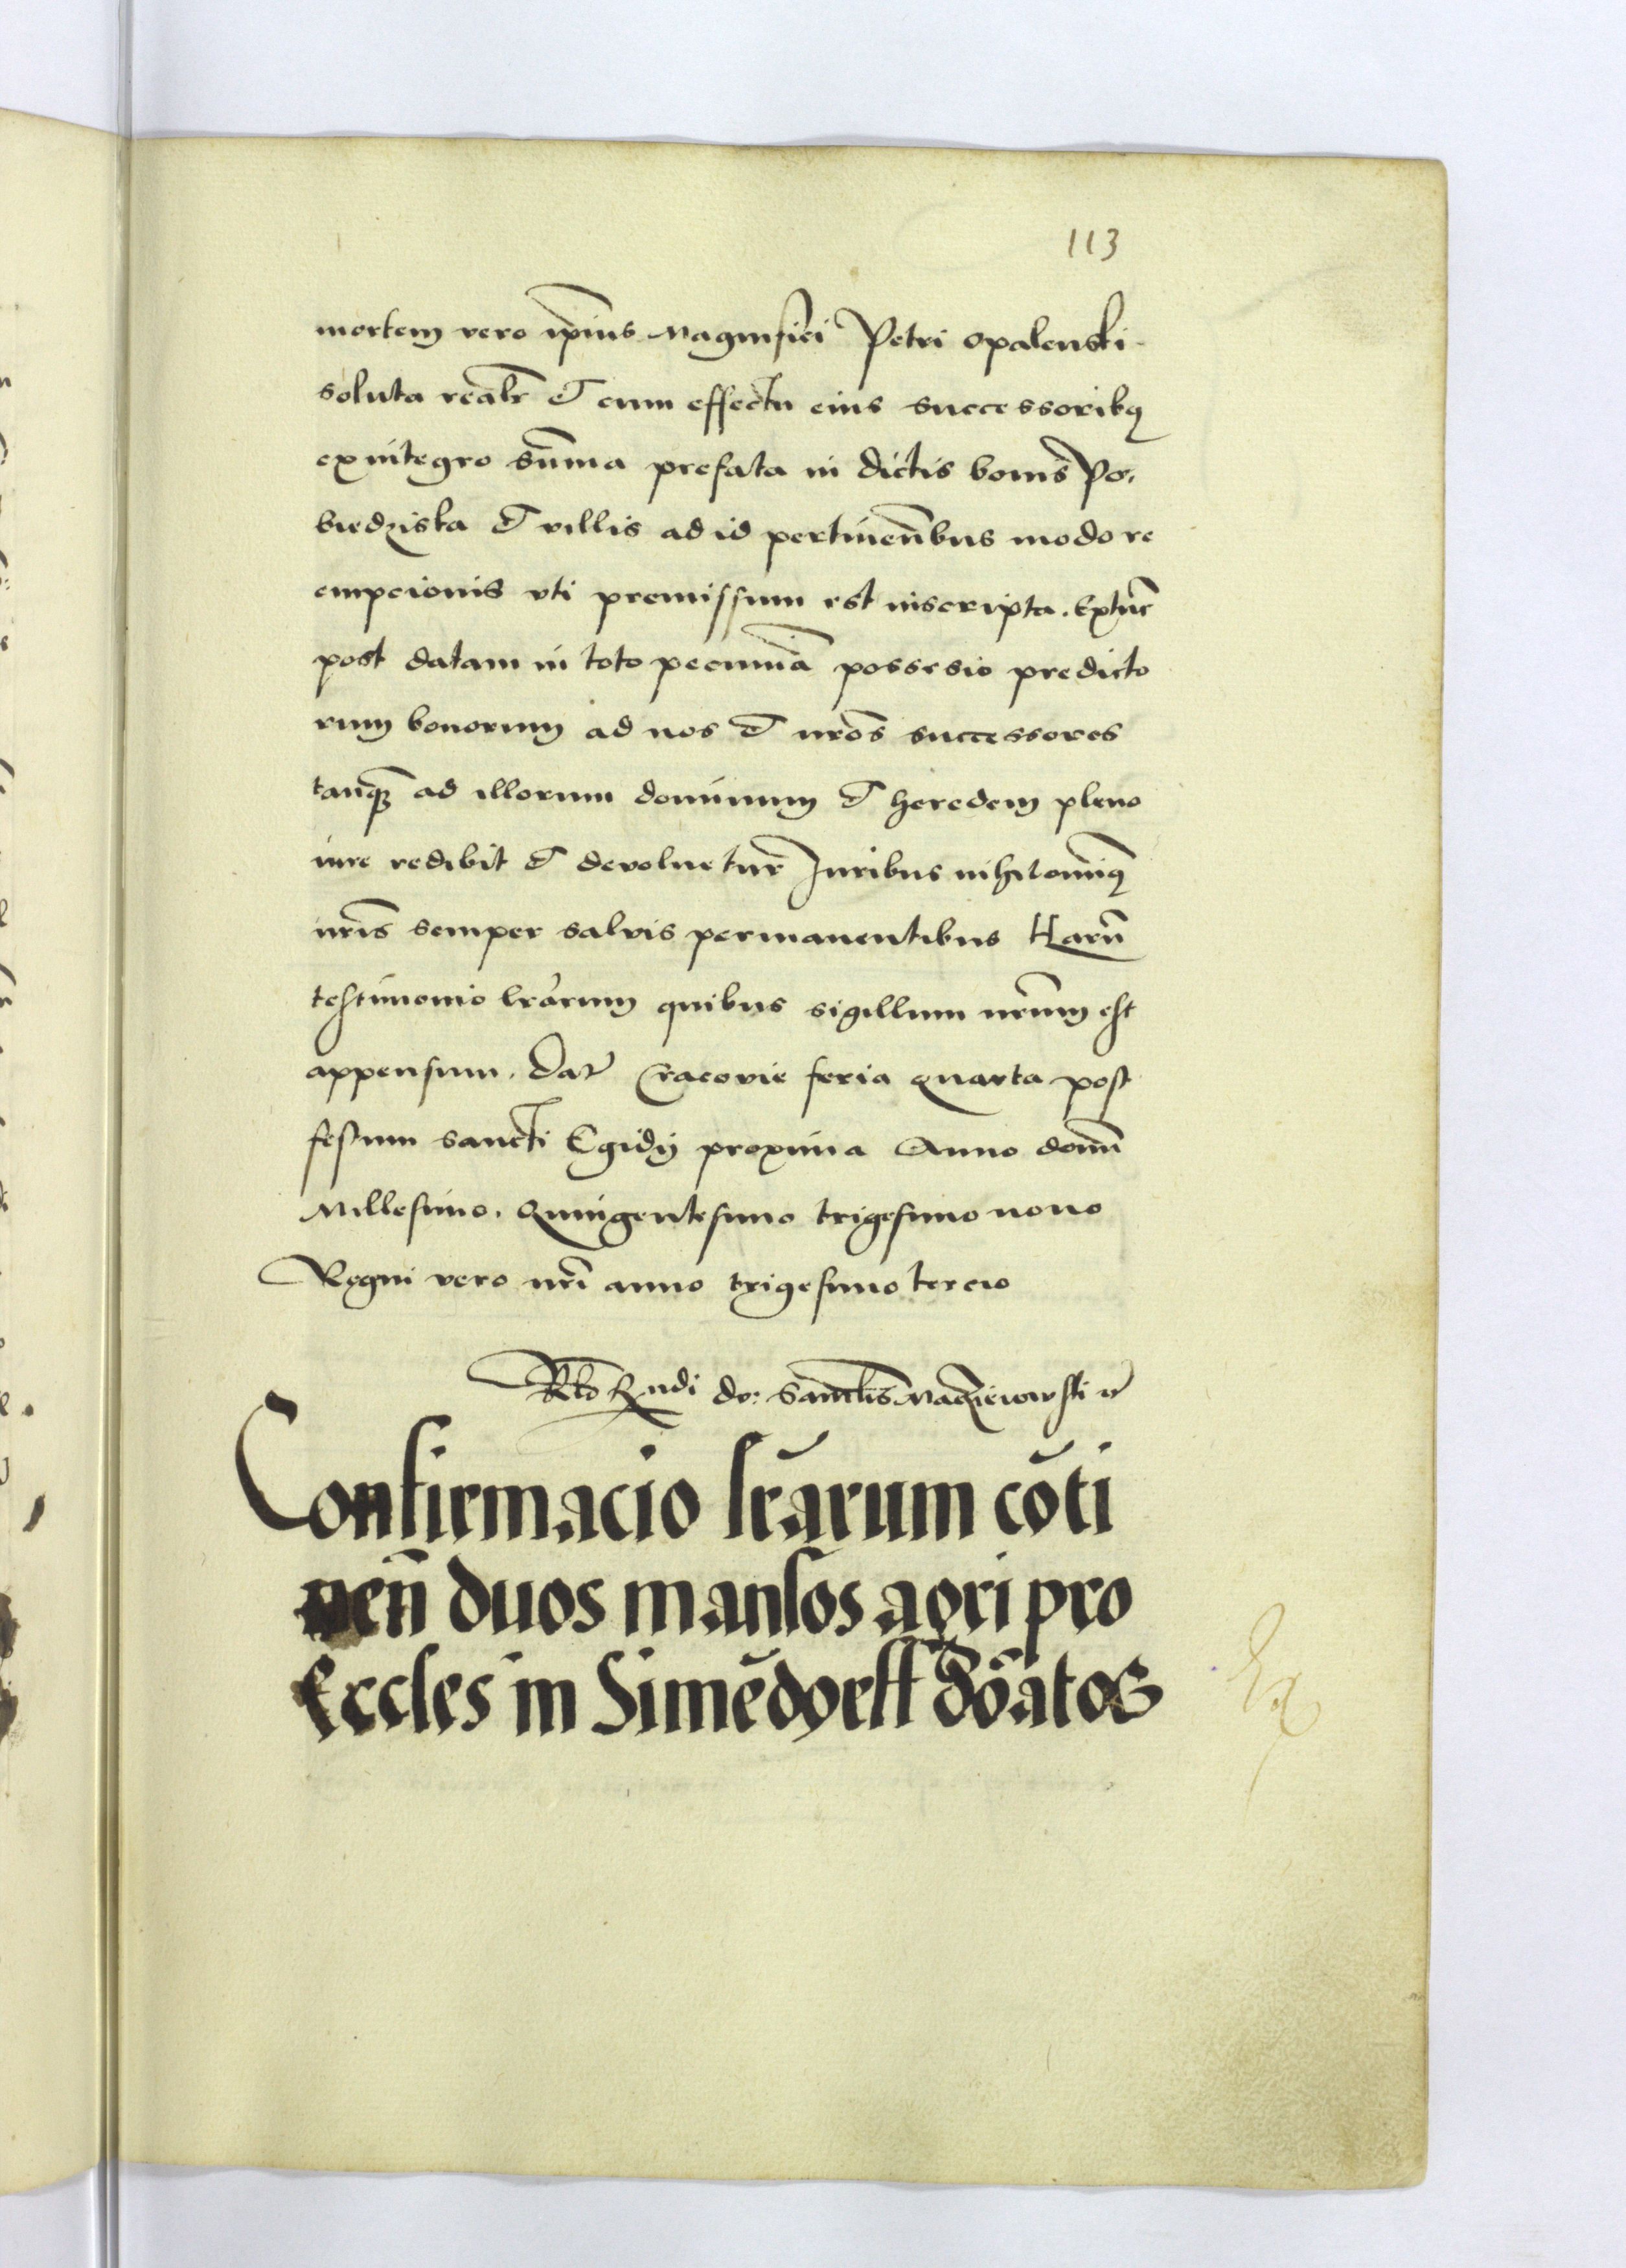 113
mortem vero ip̄ius Magnifici Petri Opalenski
soluta realr̄ et cum effectu eius successoribȝ
ex integro Sum̄a prefata in dictis bonis Po-
biedziska et villis ad id pertinen̄bus modo re
empcionis vti premissum est inscripta. Extūc
post datam in toto pecuniā possesio predicto
rum bonorum ad nos et nrōs successores
tanqȝ ad illorum dominum et heredem pleno
iure redibit et devoluetur Juribus nihilominȝ
nrīs semper salvis permanentibus Harū
testimonio lrārum quibus sigillum nrūm est
appensum. Dat̄ Cracovie feria quarta post
festum sancti Egidij proxima Anno domī
Millesimo. Quingentesimo trigesimo nono
Regni vero nrī anno trigesimo tercio
Rlō Rndi do: Samuelis Maczieiowski etc̄
Confirmacio lrārum cōti
nen̄ duos mansos agri pro
Eccles in Simēdorff dōatos